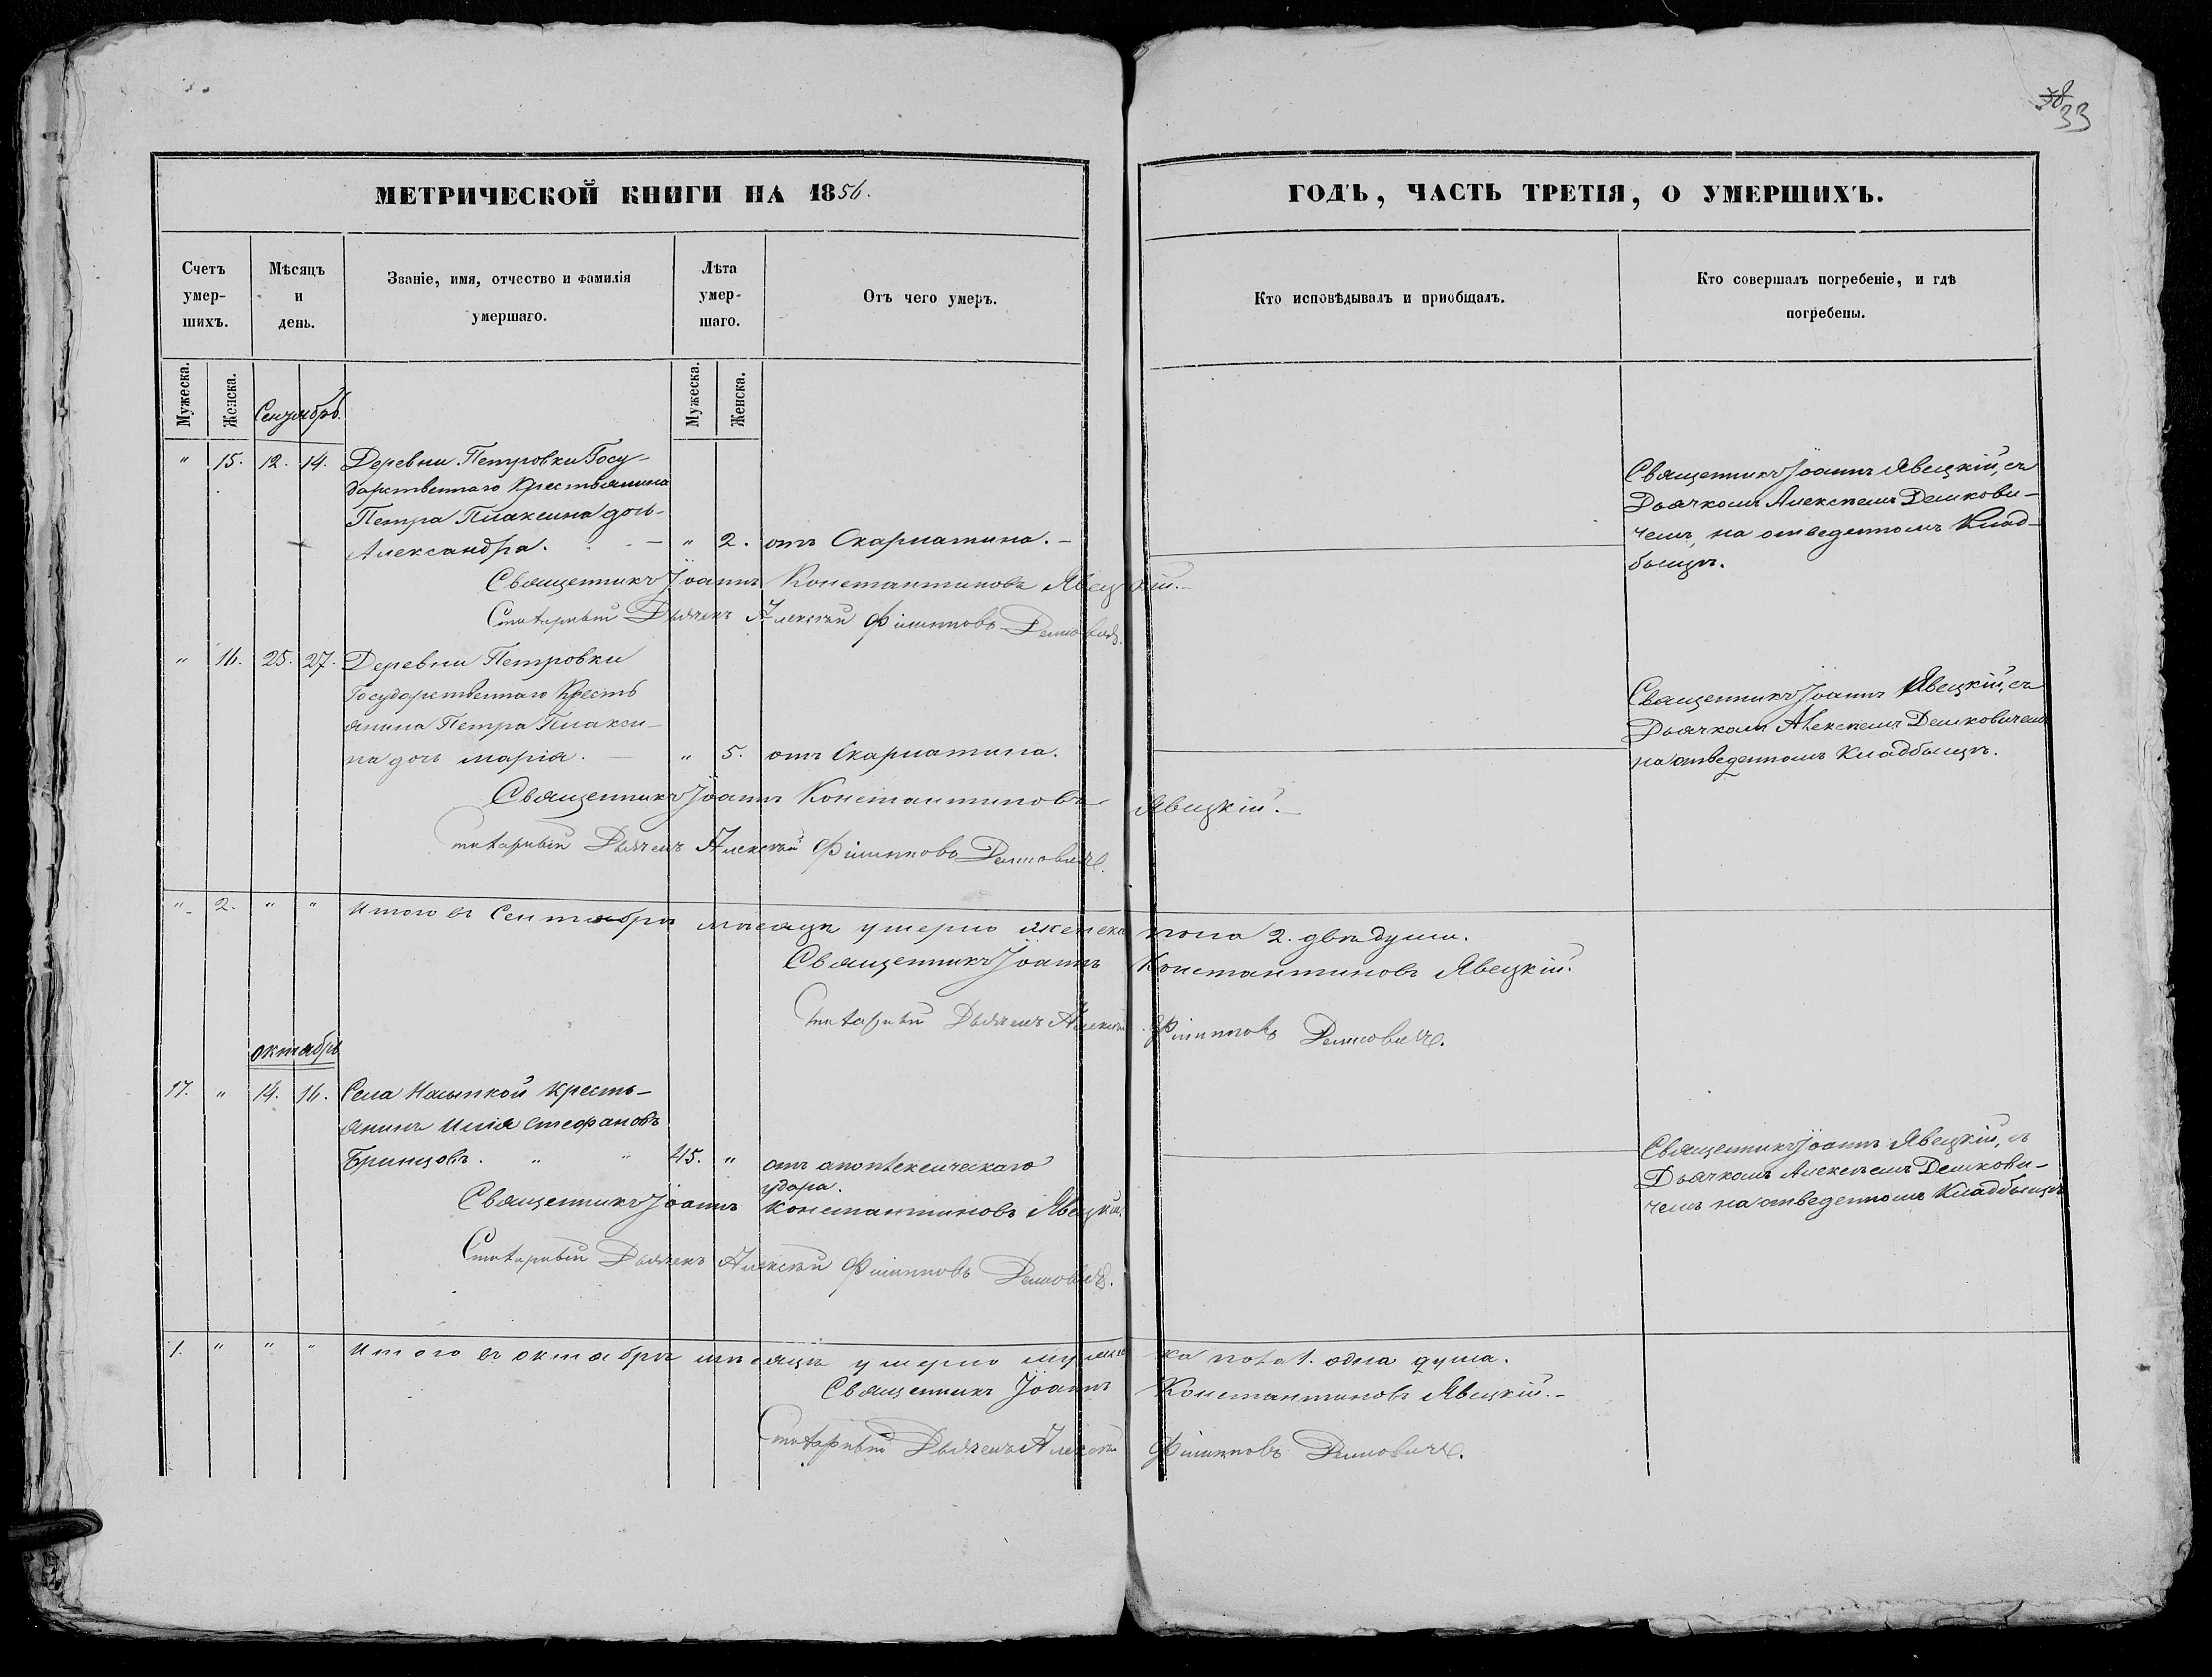 38 33
МЕТРИЧЕСКОЙ КНИГИ НА 1856.
ГОДЪ, ЧАСТЬ ТРЕТІЯ, О УМЕРШИХЪ.
Счетъ умер- шихъ.
Мѣсяцъ и день.
Званіе, имя, отчество и фамилія умершаго.
Лѣта умер- шаго.
Отъ чего умеръ.
Кто исповѣдывалъ и приобщалъ.
Кто совершалъ погребеніе, и гдѣ погребены.
Мужеска.
Женска.
Сентябрь.
Мужеска.
Женска.
" 15. 12. 14. Деревни Петровки Госу-
дарственнаго Крестьянина
Петра Плаксина дочь
Александра. - " 2. отъ Скарлатина. -
Священникъ Іоаннъ Явецкій, съ
Дьячкомъ Алексѣемъ Демкови-
чемъ, на отведенномъ Клад-
бищѣ.
Священникъ Іоаннъ Константиновъ Явецкій. -
Дьячекъ Алексѣй Филипповъ
" 16. 25. 27. Деревни Петровки
Государственнаго Кресть
янина Петра Плакси-
на дочь марія. - " 5. отъ Скарлатина.
Священникъ Іоаннъ Явецкій, съ
Дьячкомъ Алексѣемъ Демковичемъ
на отведенномъ Кладбищѣ.
Священникъ Іоаннъ Константиновъ Явецкій. -
Дьячекъ Алексѣй Филипповъ
" 2. " " Итого въ Сентябрѣ мѣсяцѣ умерло женска пола 2. двѣ души.
Священникъ Іоаннъ Константиновъ Явецкій.
Дьячекъ Алексѣй Филипповъ
октябрь
17. " 14. 16. Села Насыпкой Кресть-
янинъ Илія Стефановъ
Бринцовъ. " " 45. " отъ апоплексическаго
удара.
Священникъ Іоаннъ Явецкій, съ
Дьячкомъ Алексѣемъ Демкови-
чемъ на отведенномъ Кладбищѣ
Священникъ Іоаннъ Константиновъ Явецкій.
Дьячекъ Алексѣй Филипповъ
1. " " " Итого въ октябрѣ мѣсяцѣ умерло мужеска пола 1. одна душа.
Священникъ Іоаннъ Константиновъ Явецкій. -
Дьячекъ Алексѣй Филипповъ